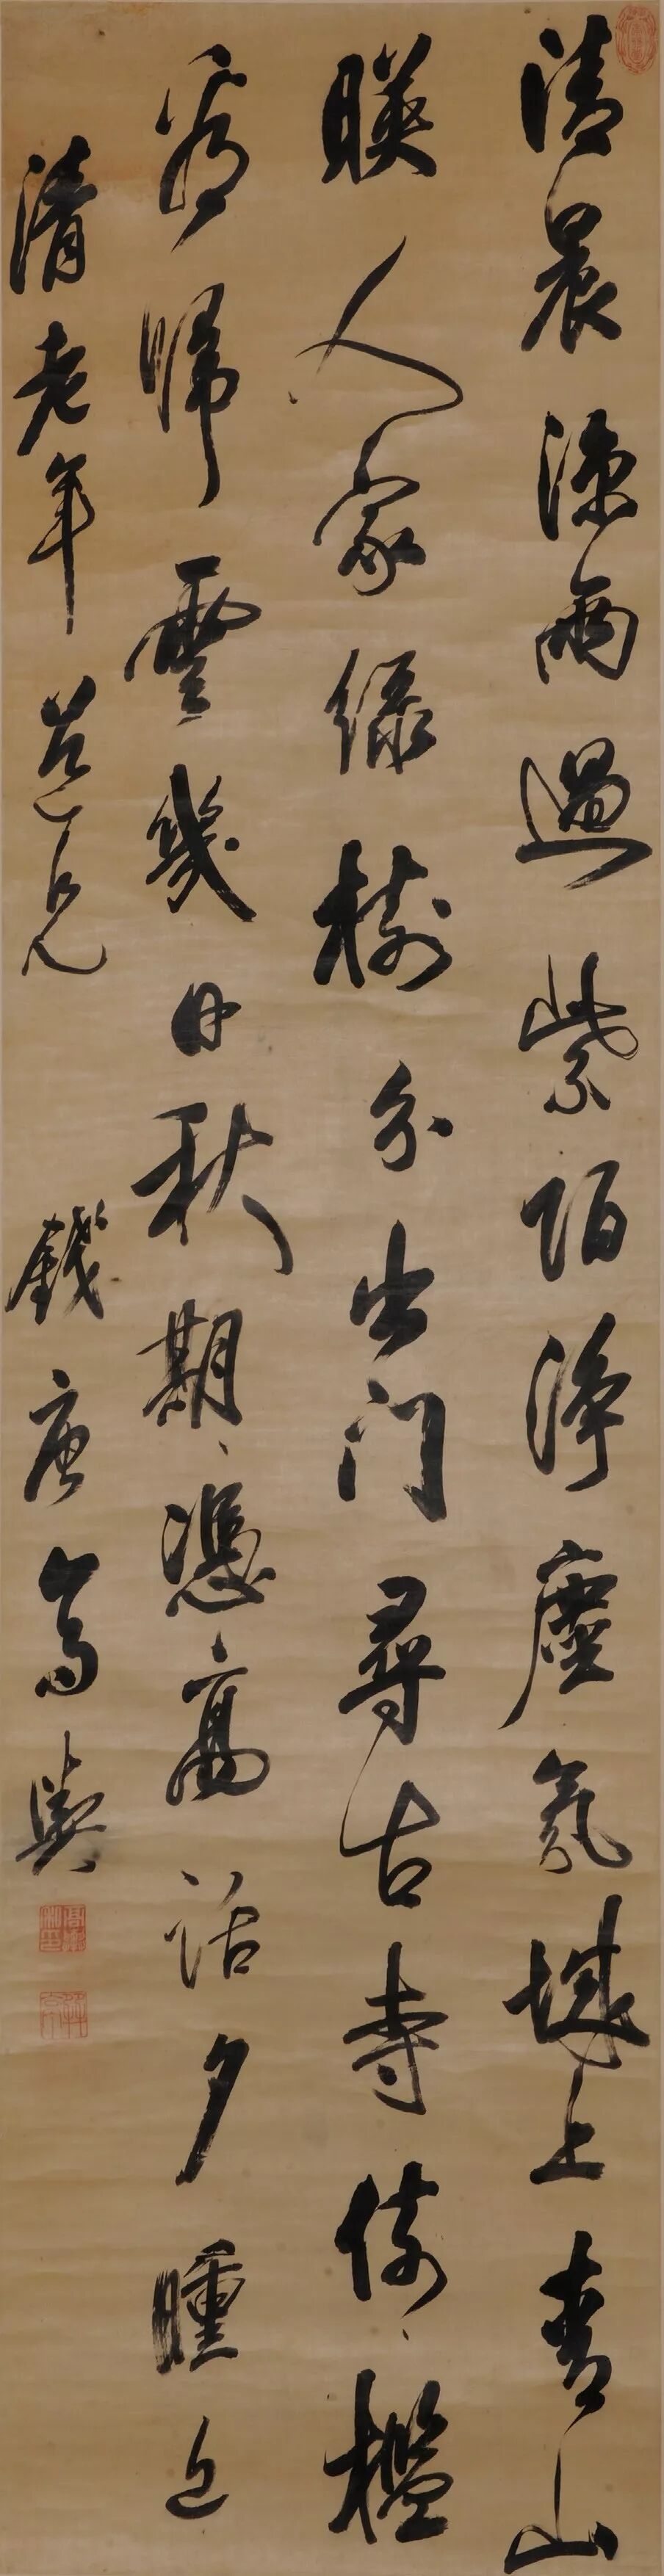 清晨涼雨過紫陌淨塵氛城上青山
暎人家綠樹分出門尋古寺倚檻
看歸雲幾日秋期憑高話夕曛之
清老年道兄 錢唐高輿